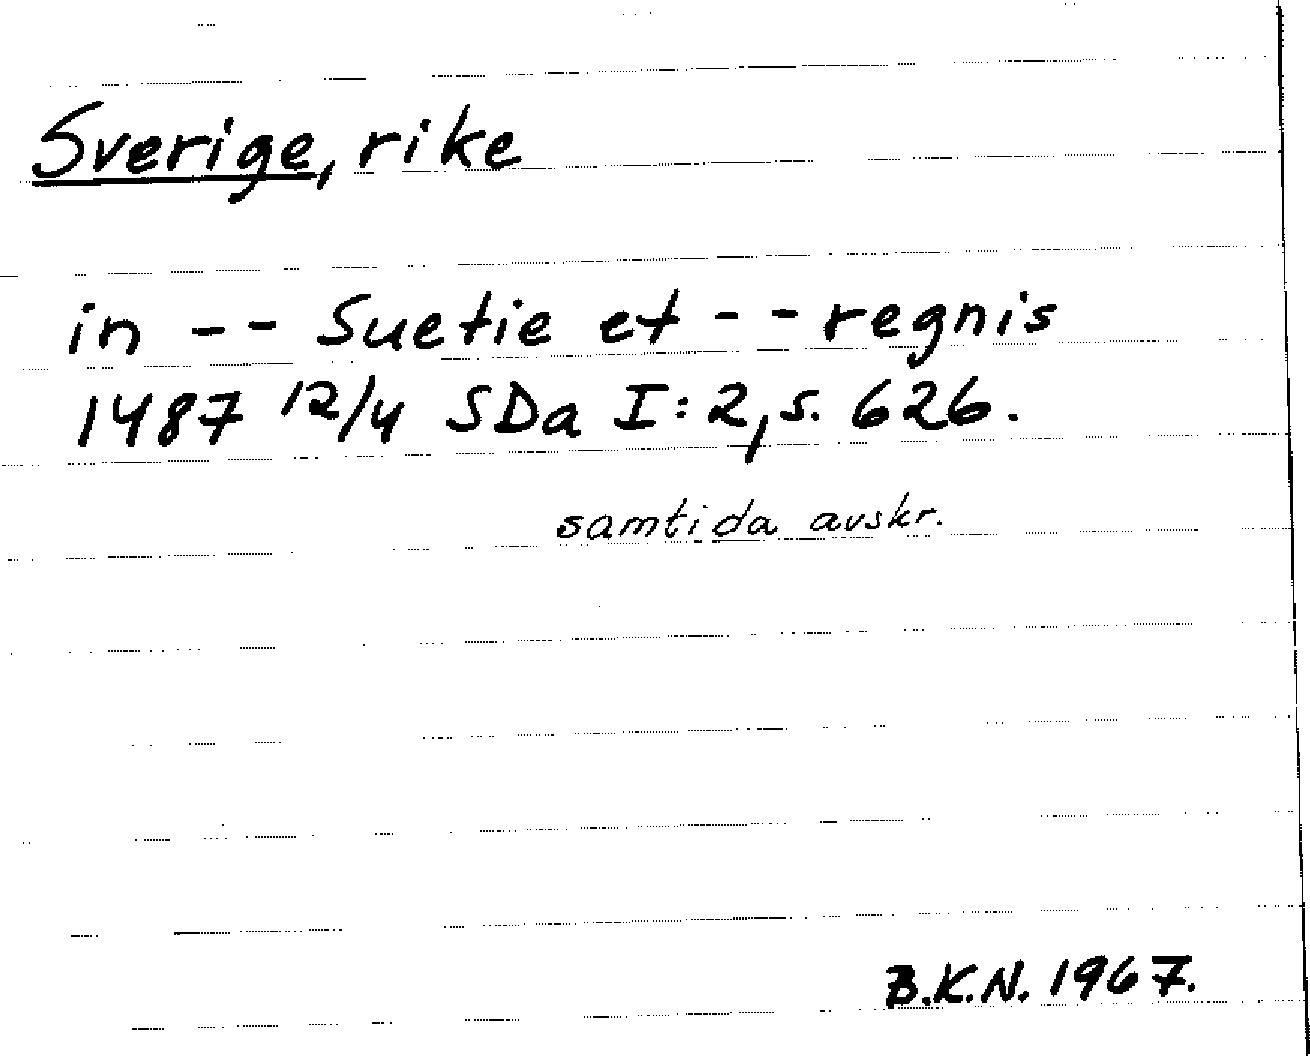 Sverige, rike
in -- Suetie et -- regnis
1487 12/4 SDa I:2, s. 626.
samtida avskr.
B.K.N. 1967.